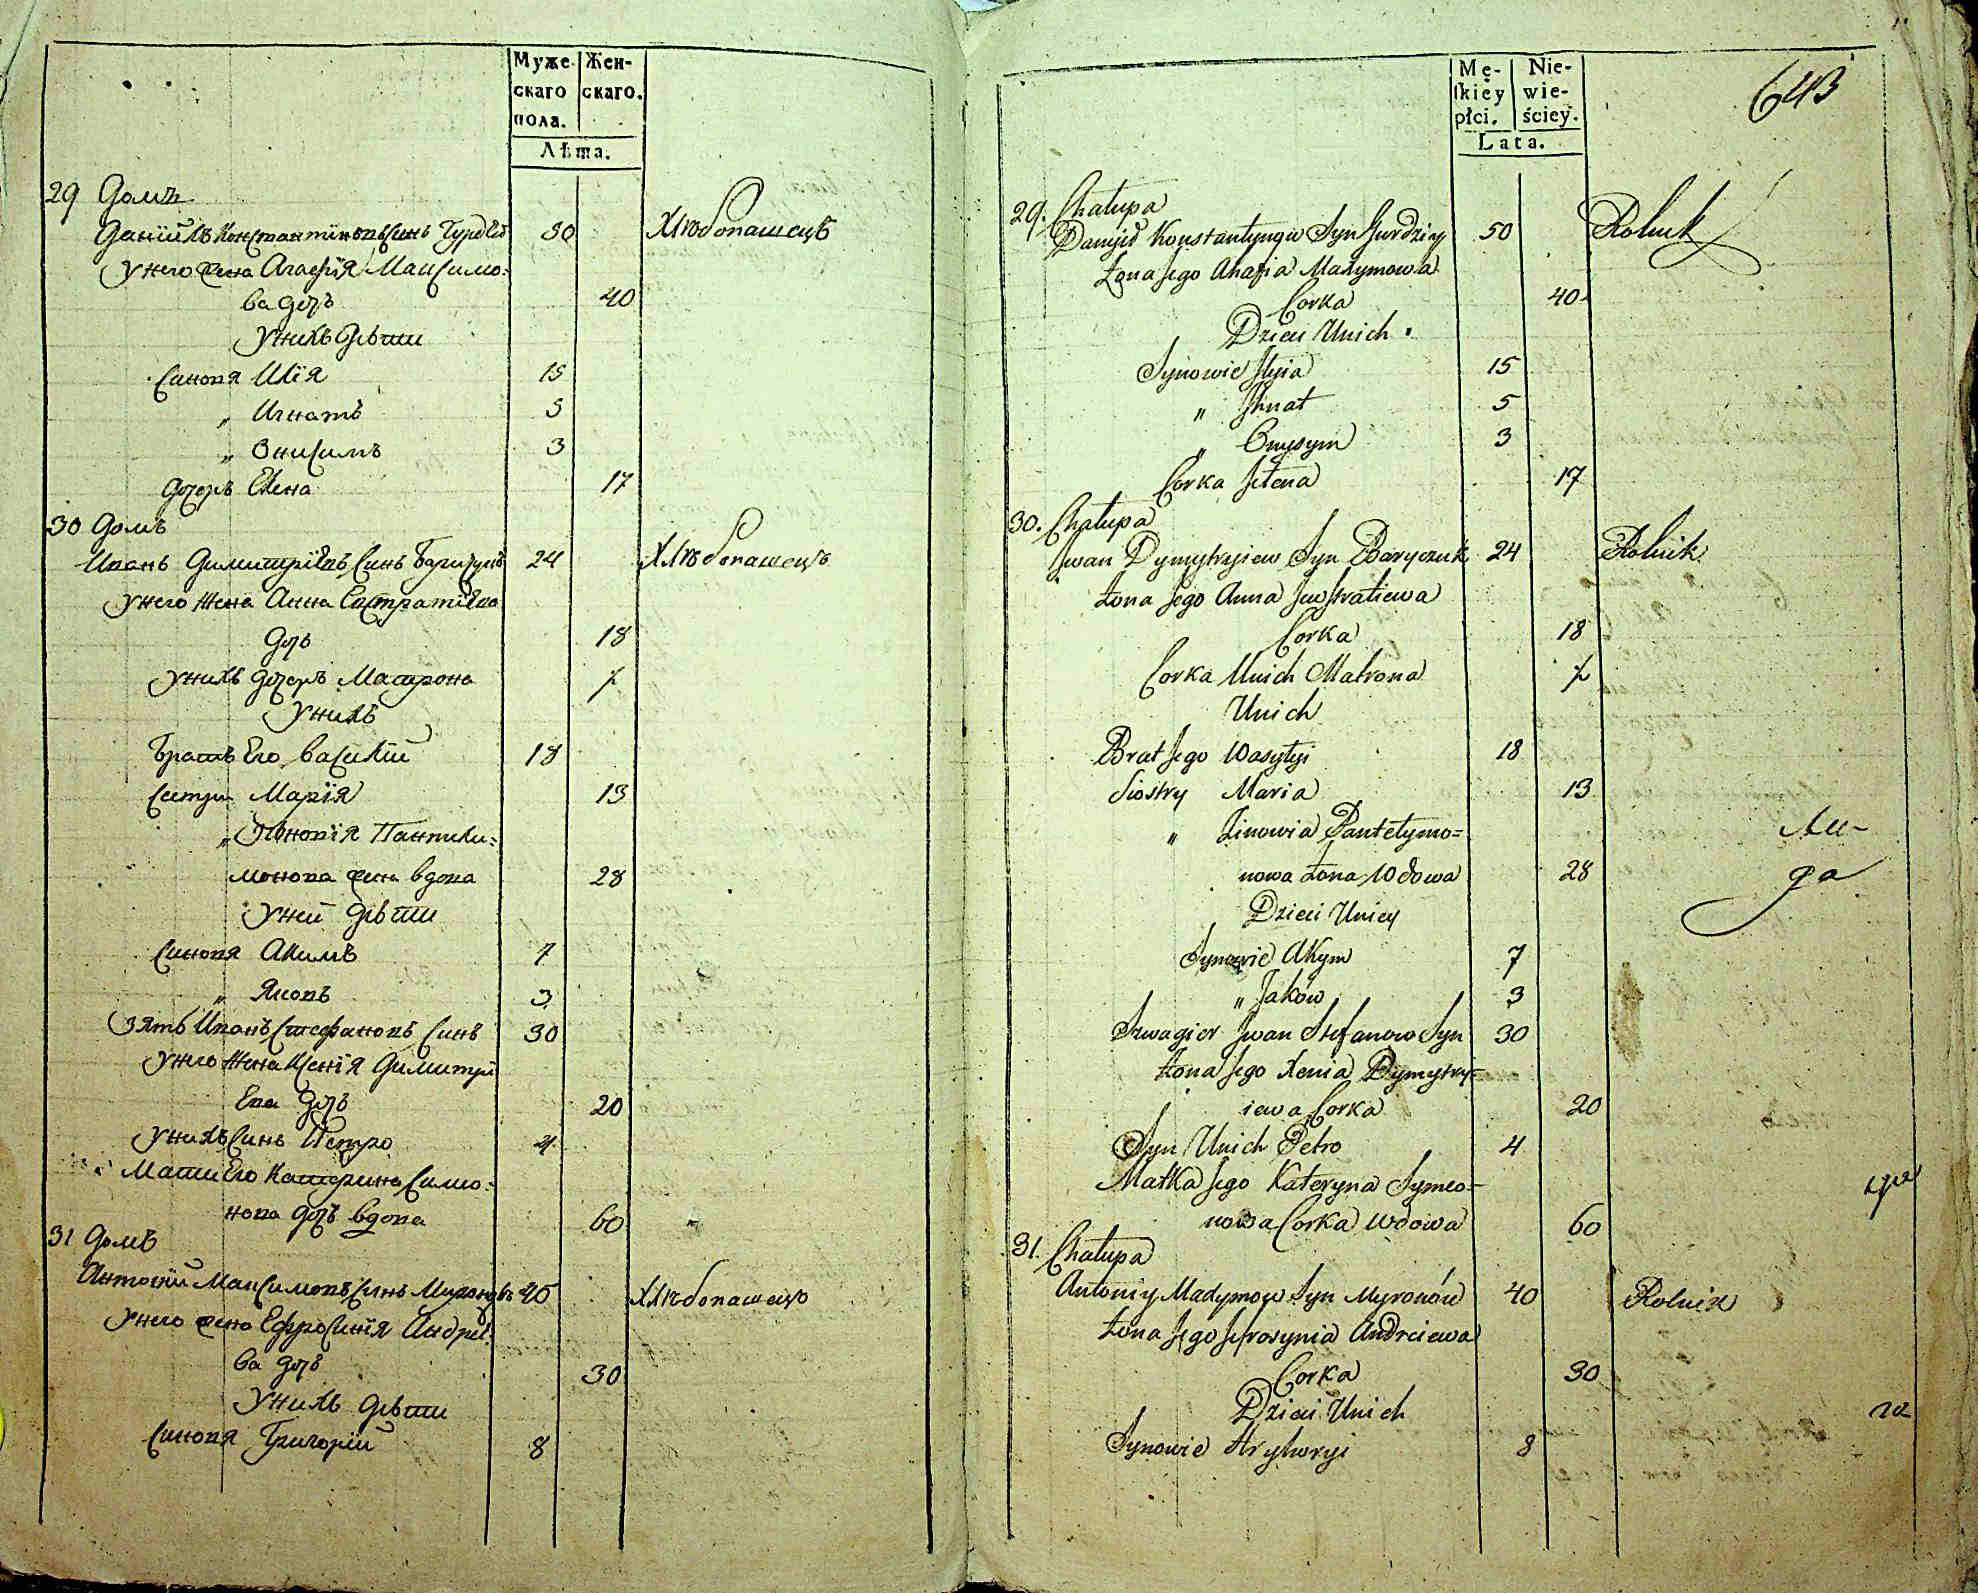 Муже- Жен-
скаго скаго.
пола.
Лѣта.
29 Домъ
Даніилъ Константиновъ Синъ 50 Хлѣбопашецъ
У него жена Агафія Максимо-
ва дочь 40
У нихъ Дѣти
Синовя Илія 15
„ Игнатъ 5
„ Онисимъ 3
Дочерь Елена 17
30 Домъ
Иванъ Димитріевъ Синъ Баричукъ 24 Хлѣбопашецъ
У него жена Анна Евстратіева
дочь 18
У нихъ дочерь Матрона ½
У нихъ
Братъ Его Василій 18
Сестри Марія 13
„ Зѣновія Пантили-
монова жена вдова 28
У ней дѣти
Синовя Акимъ 7
„ Яковъ 3
Зять Иванъ Стефановъ Синъ 30
У него жена Ксенія Димитрі
Ева дочь 20
У нихъ Синъ Петро 4
Мати Его Катерина Симо-
нова дочь вдова 60
31 Домъ
Антоній Максимовъ Синъ Мироновъ 40 Хлѣбопашецъ
У него жена Ефросинія Андрее-
ва дочь 30
У нихъ дѣти
Синовя Григорій 8
Mę- Nie-
skiey wie-
płci. ściey.
Lata.
643
29. Chałupa
Danyił Konstantynow Syn Gurdziey 50 Rolnik
Żona Jego Ahafia Maxymowa
Corka 40
Dzieci Unich
Synowie Ilyia 15
„ Ihnat 5
„ Onysym 3
Corka Jełena 17
30. Chałupa
Iwan Dymytryiew Syn Baryczuk 24 Rolnik
Żona Jego Anna Jewstratiewa
Corka 18
Corka Unich Matrona ½
Unich
Brat Jego Wasylyi 18
Siostry Maria 13
„ Zinowia Pantełymo=
nowa Żona Wdowa 28
Dzieci Uniey
Synowie Akym 7
„ Jaków 3
Szwagier Iwan Stefanow Syn 30
Żona Jego Xenia Dymytry=
iewa Corka 20
Syn Unich Petro 4
Matka Jego Kateryna Symeo-
nowa Corka Wdowa 60
31. Chałupa
Antoniy Maxymow Syn Myronów 40 Rolnik
Żona Jego Jefrosynia Andreiewa
Corka 30
Dzieci Unich
Synowie Hryhoryi 8